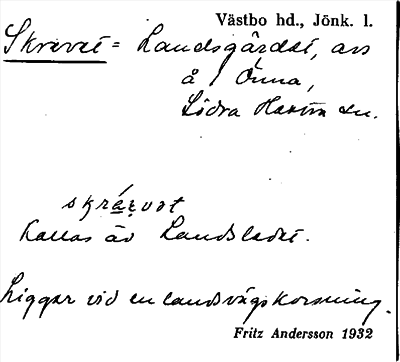 Västbo hd., Jönk. l.
Skravet = Landsgärdet, avs
å Önna,
Södra Hestra sn.
skrávvat
Kallas äv Landsledet.
Ligger vid en landsvägskorsning.
Fritz Andersson 1932